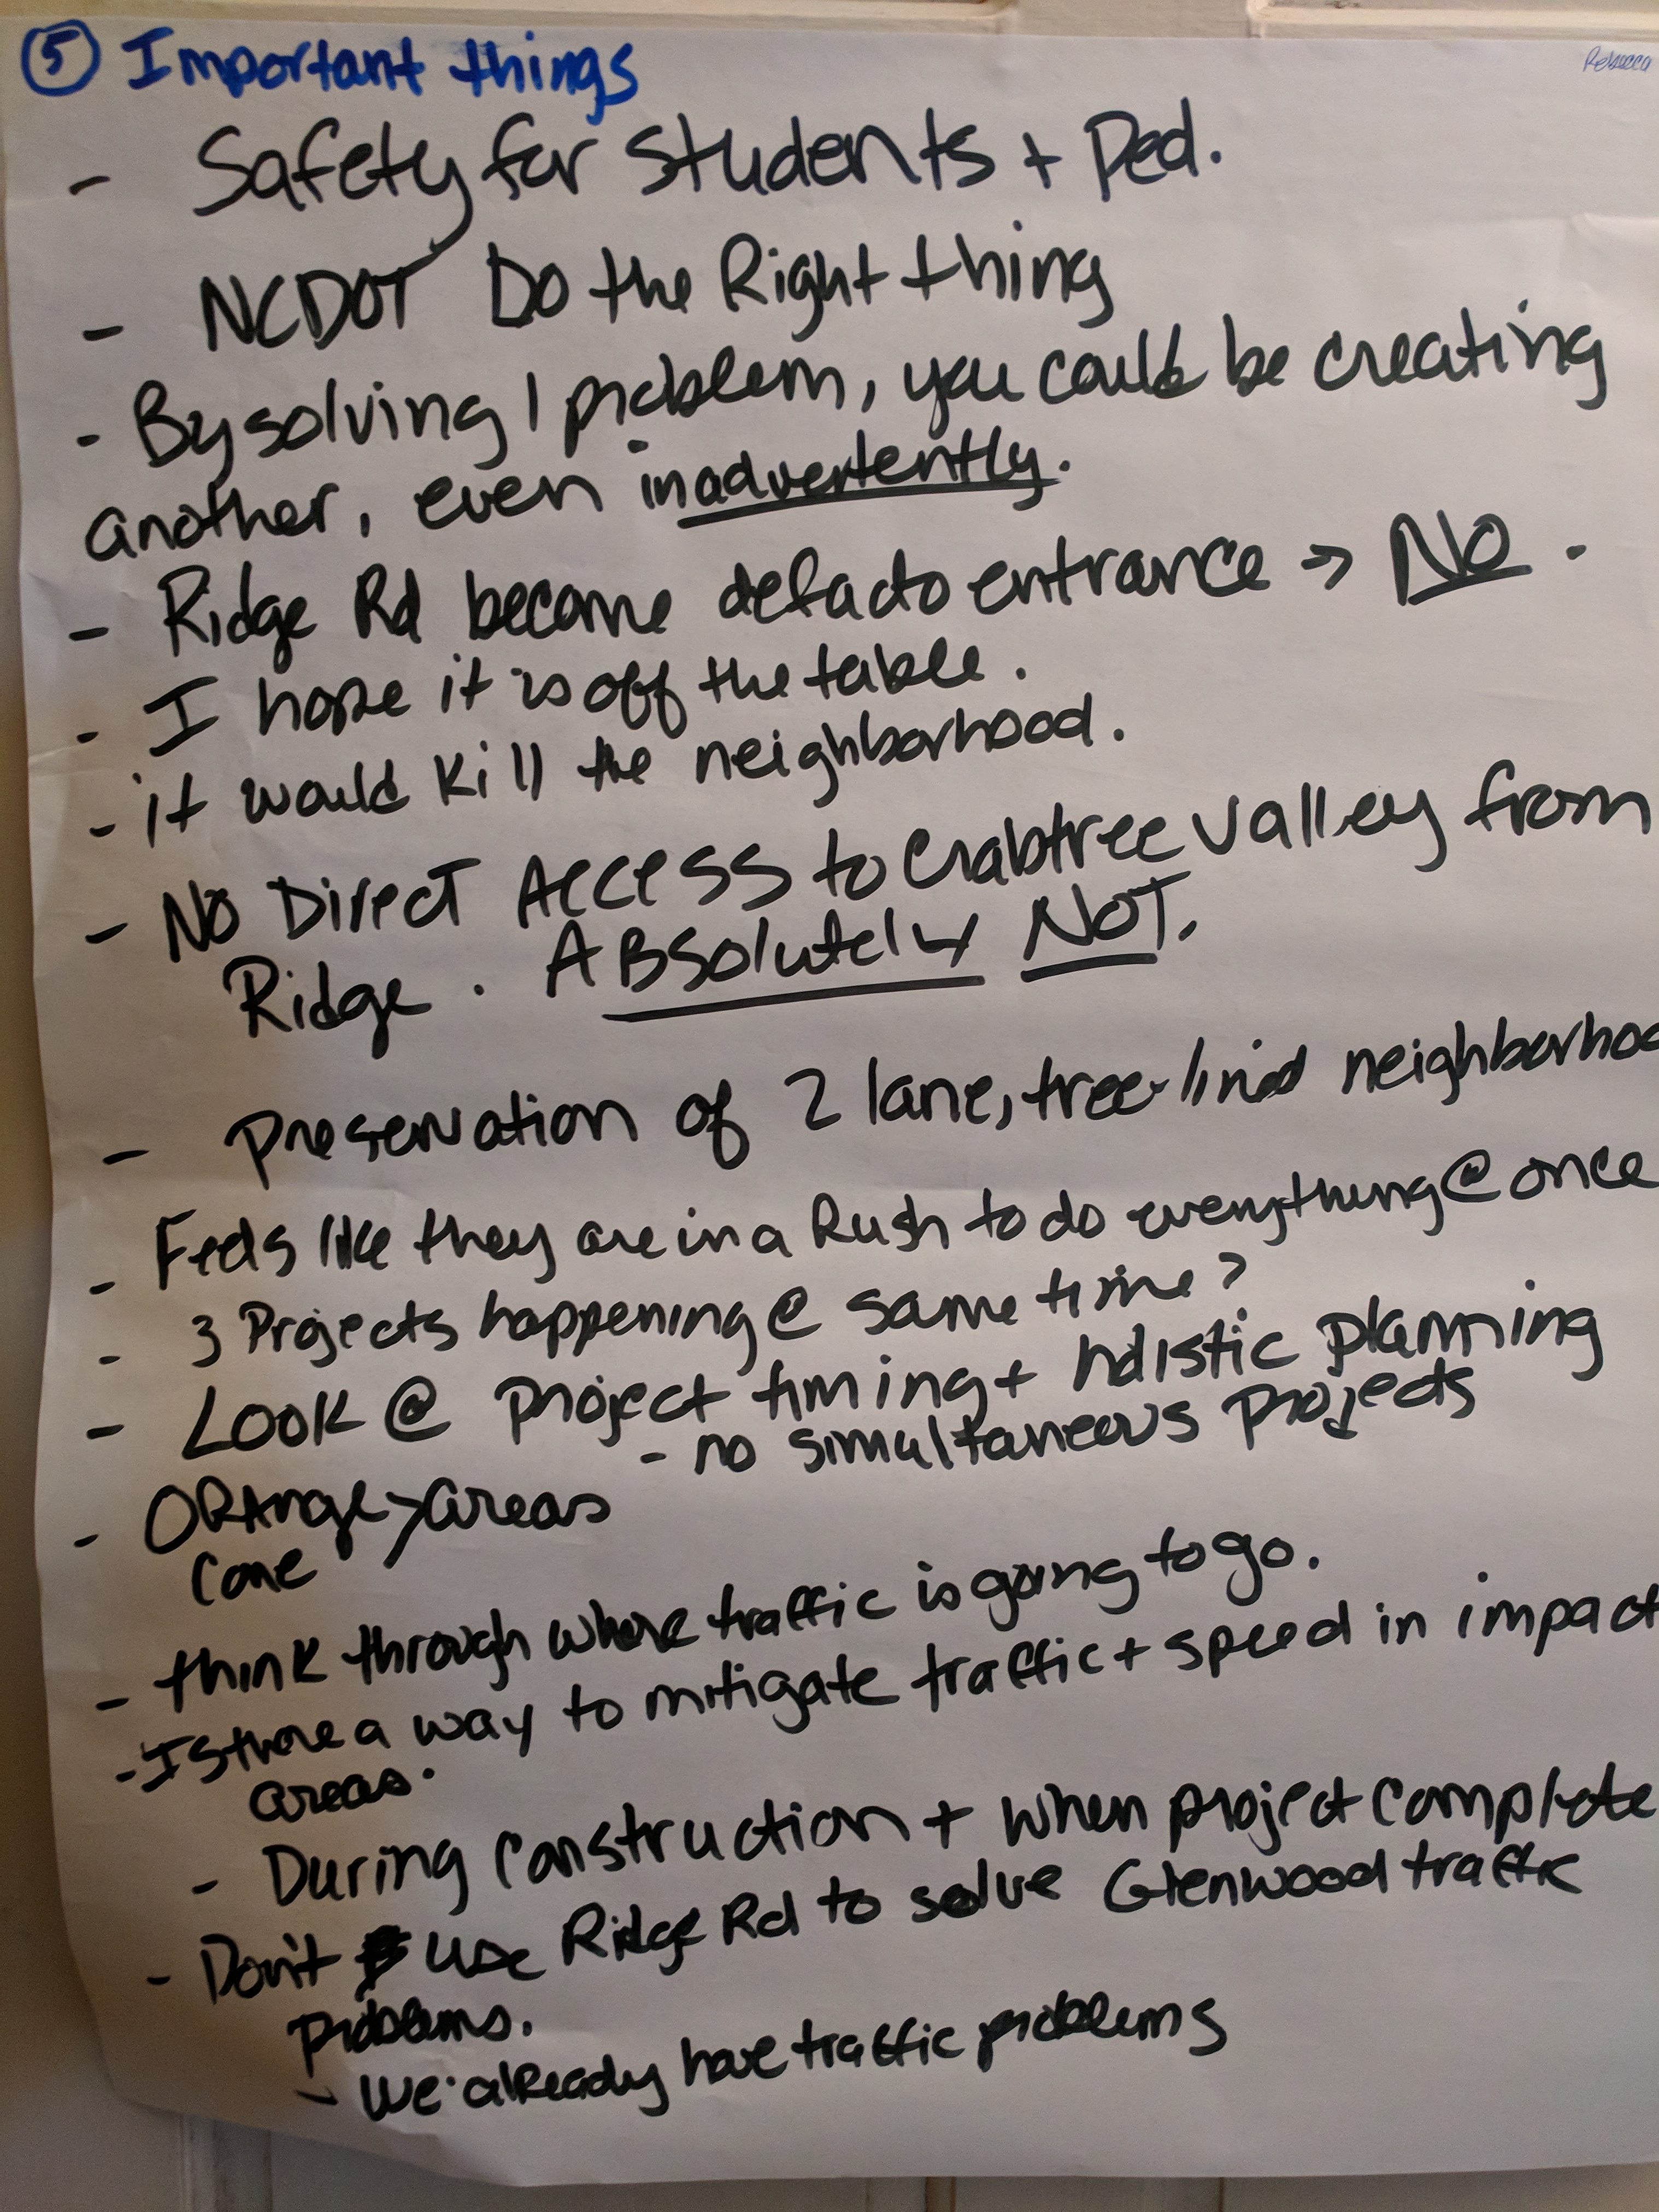 ⑤ Important things
Rebecca
- Safety for students + Ped.
- NCDOT Do the Right thing
- By solving 1 problem, you could be creating
another, even inadvertently.
- Ridge Rd become defacto entrance → No.
- I hope it is off the table.
- it would kill the neighborhood.
- No Direct Access to Crabtree Valley from
Ridge. Absolutely NOT.
- Preservation of 2 lane, tree-lined neighborhoo
- Feels like they are in a Rush to do everything @ once
- 3 Projects happening @ same time?
- Look @ project timing + holistic planning
- no simultaneous projects
- ORAnge > areas
Cone
- think through where traffic is going to go.
- Is there a way to mitigate traffic + speed in impact
areas.
- During construction + when project complete
- Don't use Ridge Rd to solve Glenwood traffic
problems.
- We already have traffic problems